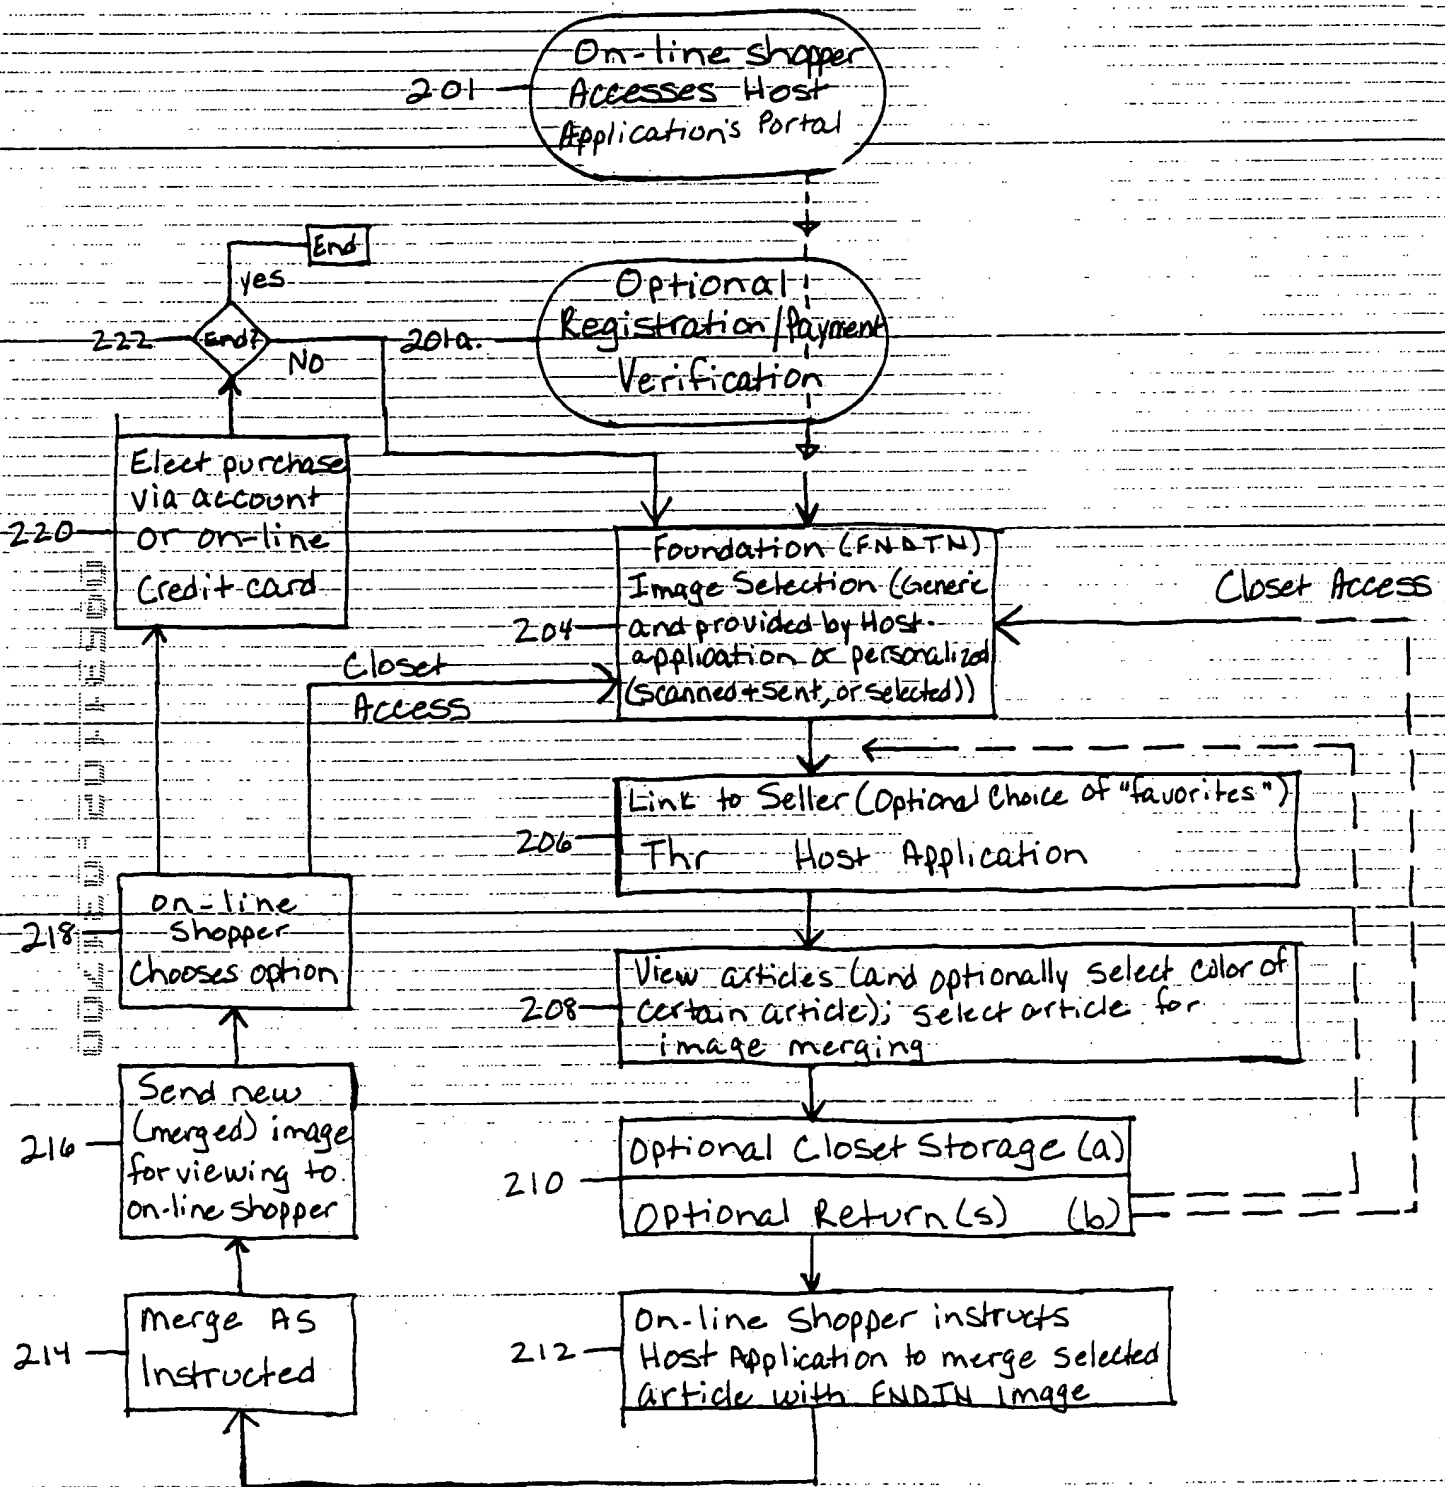 On-line shopper
Accesses Host
Application's Portal
201
End
yes
End?
222
No
201a.
Optional
Registration/Payment
Verification
Elect purchase
via account
or on-line
Credit card
220
Foundation (FNDTN)
Image Selection (Generic
and provided by Host
application or personalized
(scanned + sent, or selected))
204
Closet Access
Closet
Access
Link to Seller (Optional Choice of "favorites")
Thr Host Application
206
on-line
Shopper
Chooses option
218
View articles (and optionally select color of
certain article); select article for
image merging
208
Send new
(merged) image
for viewing to
on-line shopper
216
Optional Closet Storage (a)
Optional Return(s) (b)
210
Merge As
Instructed
214
On-line Shopper instructs
Host Application to merge selected
article with FNDTN Image
212